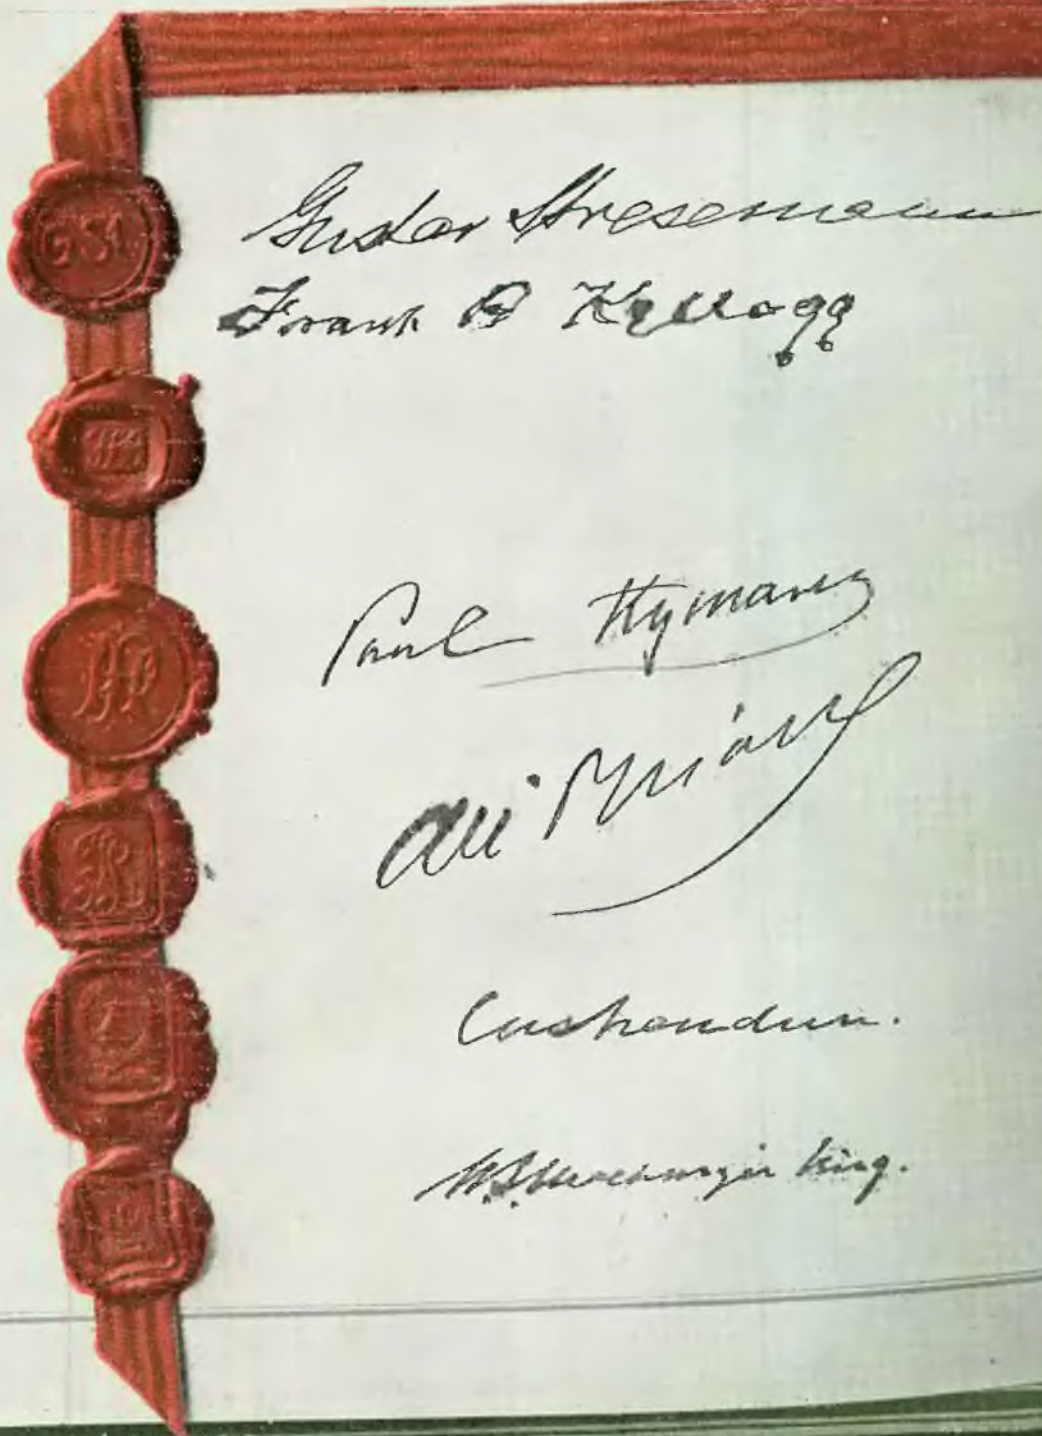 Gustav Stresemann
Frank B Kellogg
Paul Hymans
Ari Briand
Cushendun.
W.L. Mackenzie King.
G.St.